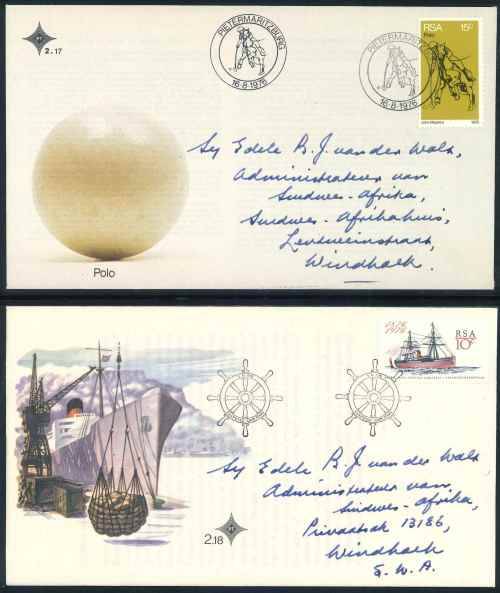 2.17
PIETERMARITZBURG
16-8-1976
PIETERMARITZBURG
16-8-1976
RSA 15c
Polo
Sy Edele B. J. van der Walt,
Administrateur van
Suidwes-Afrika,
Suidwes-Afrikahuis,
Leutweinstraat,
Windhoek.
Polo
RSA
10c
Sy Edele B. J. van der Walt
Administrateur van
Suidwes-Afrika,
Privaatsak 13186,
Windhoek
S. W. A.
2.18